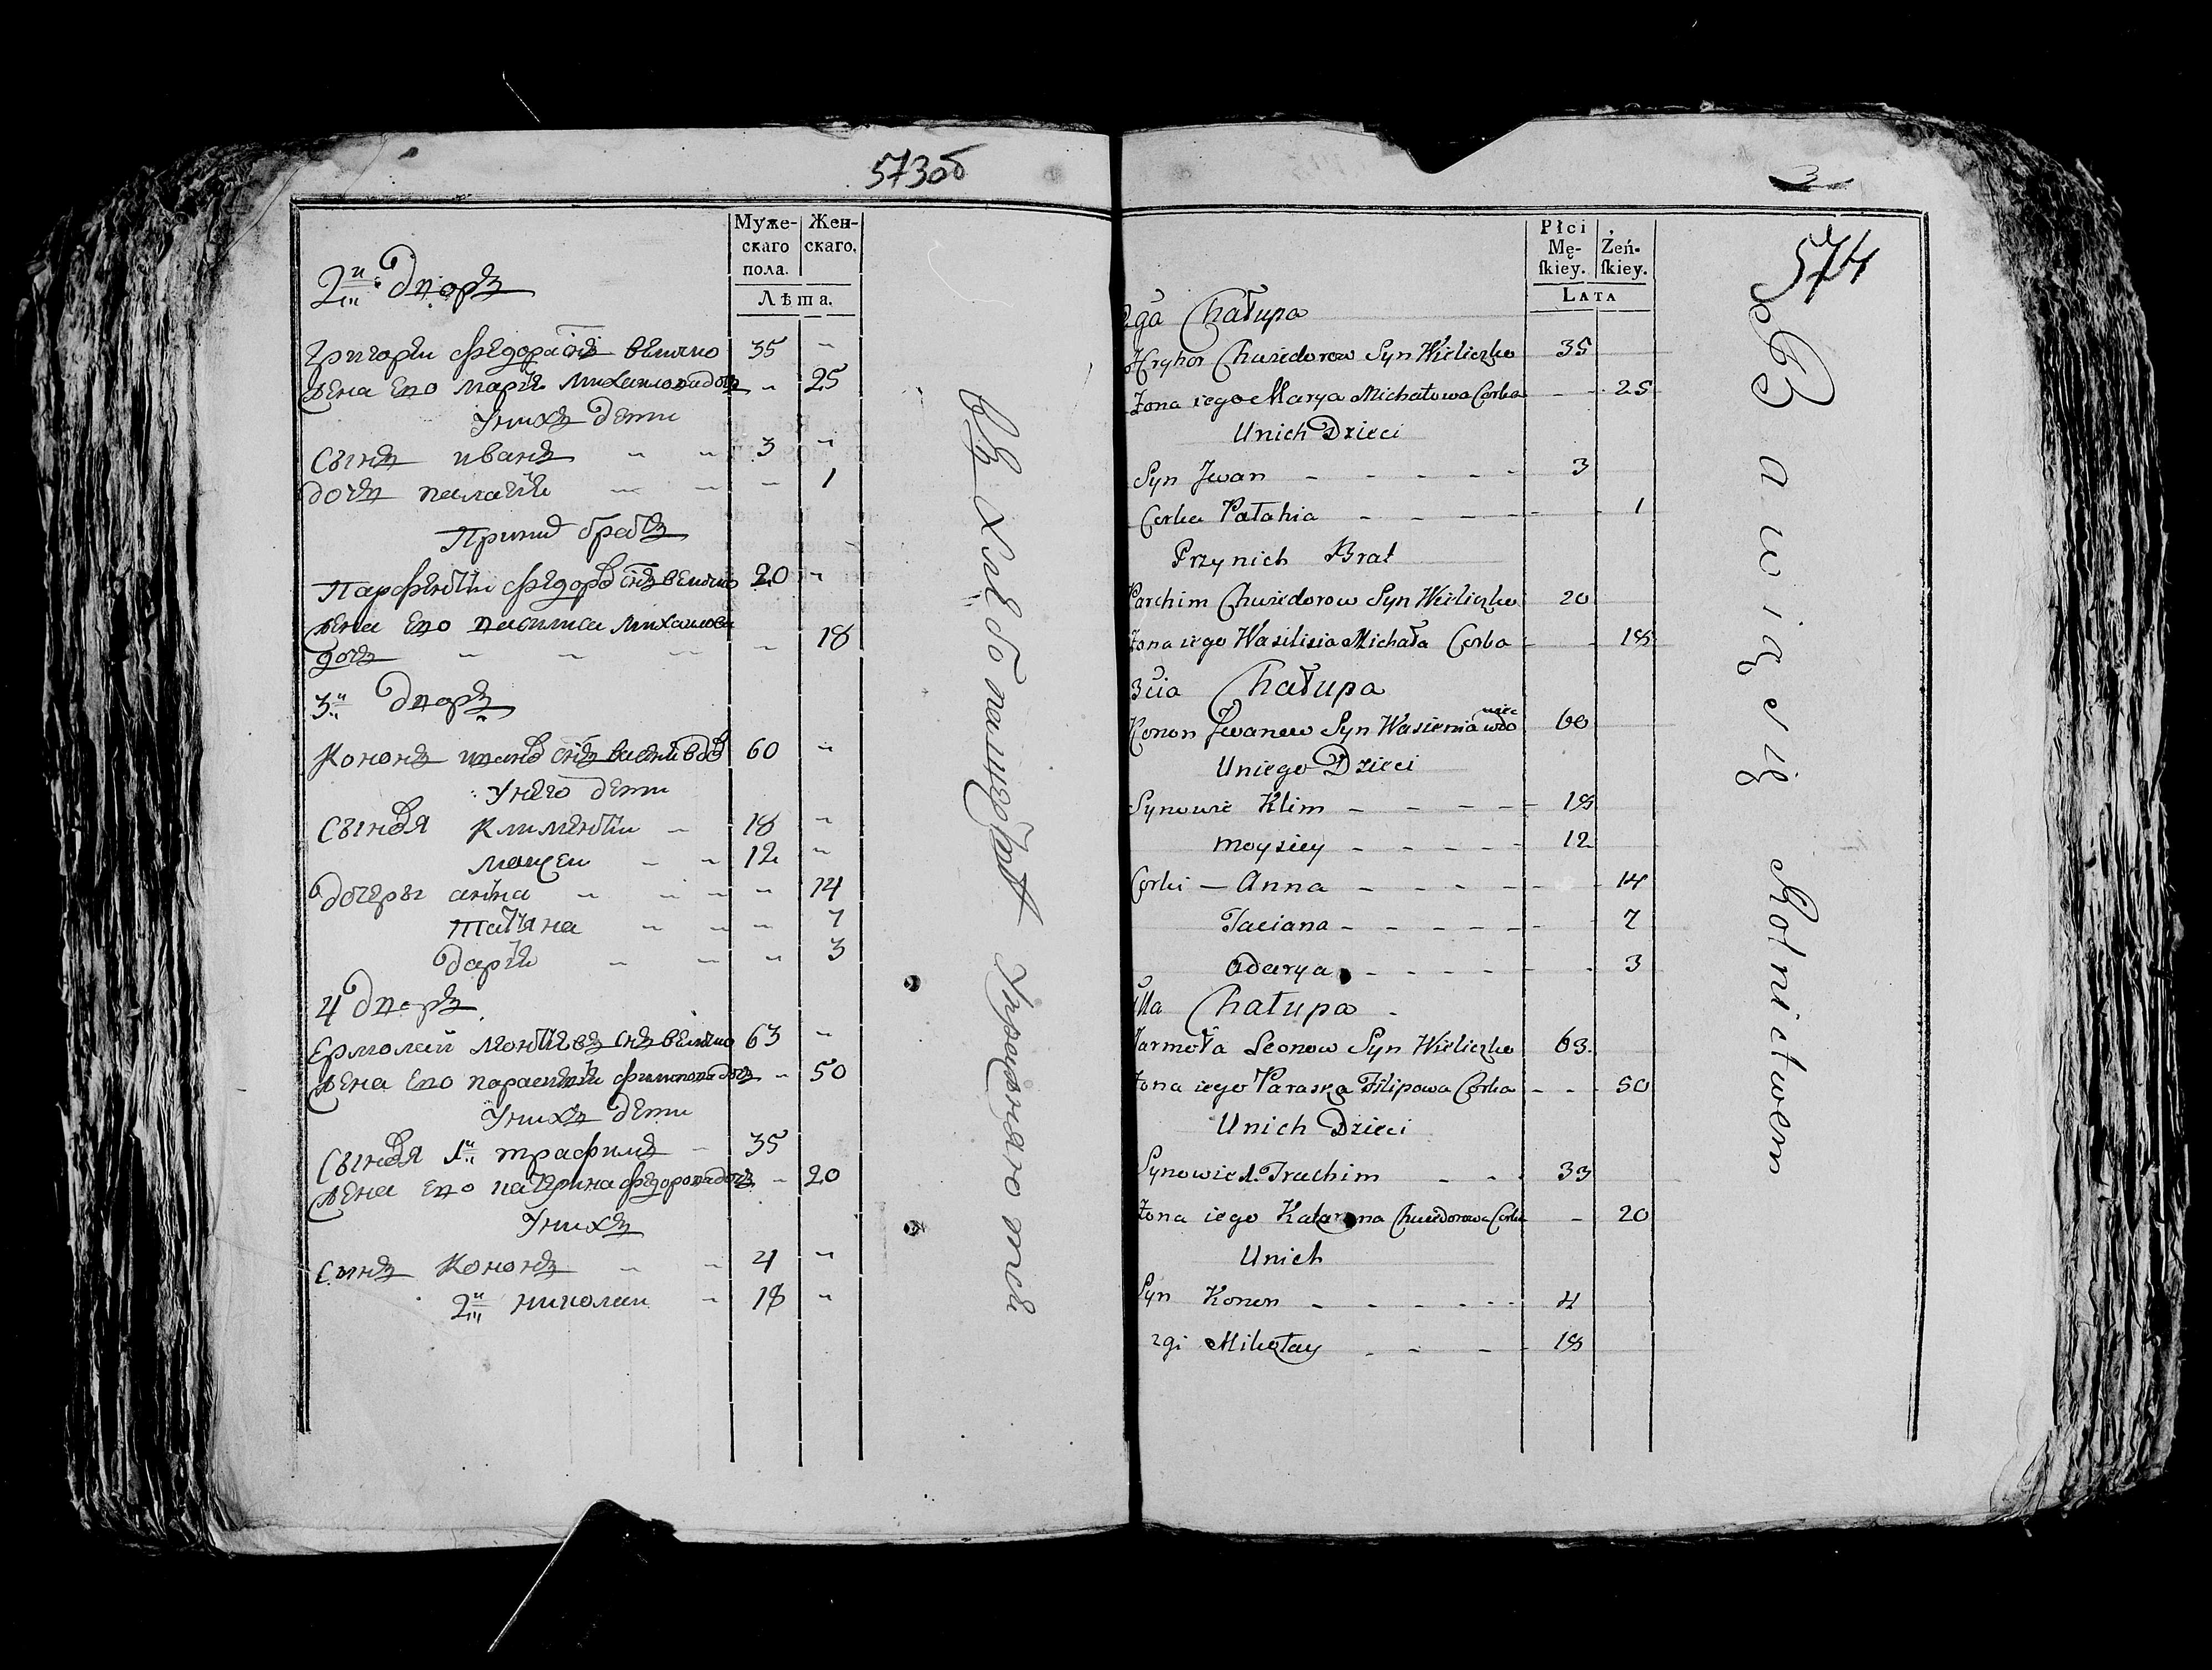 573об
Муже-
скаго
пола.
Жен-
скаго.
Лѣта.
2й Дворъ
Григорей Федоровъ снъ Величко 35 "
Жена Его Марья Михайлова дочь " 25
У нихъ Дети
Сынъ иванъ " " 3 "
Дочь палагѣя " 1
При них братъ
Парфентий Федоровъ снъ Величко 20 "
Жена Его василиса Михайлова
дочь " 18
3й Дворъ
Кононъ ивановъ снъ 60 "
У него Дети
Сыновя Климентий 18 "
12 "
Дочеры анна " 14
татьяна " 7
Дарья " 3
4 Дворъ
Ермолай снъ Величко 63 "
Жена Его дочь " 50
У нихъ Дети
Сыновя 1й трафимъ 35
Жена Его катерина Федорова дочь " 20
У нихъ
Сынъ Кононъ 4 "
2й николай 18 "
3
574
Płci
Mę-
skiey.
Żeń-
skiey.
LATA
2ga Chałupa
Hryhor Chwiedorow Syn Wieliczko 35
Zona iego Marya Michałowa Corka - - 25
Unich Dzieci
Syn Jwan - - - - - 3
Corka Pałahia - - - - - - 1
Przy nich Brat
Parchim Chwiedorow Syn Wieliczko 20
Zona iego Wasilisia Michała Corka - - 18
3cia Chałupa
Konon Jwanow Syn 60
Uniego Dzieci
Synowie Klim - - - - - 18
Moysiey - - - - - 12
Corki - Anna - - - - - - 14
Taciana - - - - - - 7
Adarya - - - - - - 3
4ta Chałupa
Jarmoła Leonow Syn Wieliczko 63.
Zona iego Paraska Filipowa Corka - - - 50
Unich Dzieci
Synowie 1. Trachim - - - 33
Zona iego Katarzyna Chwiedorowa Corka - 20
Unich
Syn Konon - - - - - - 4
2gi Mikołay - - - - 18
Bawią się Rolnictwem